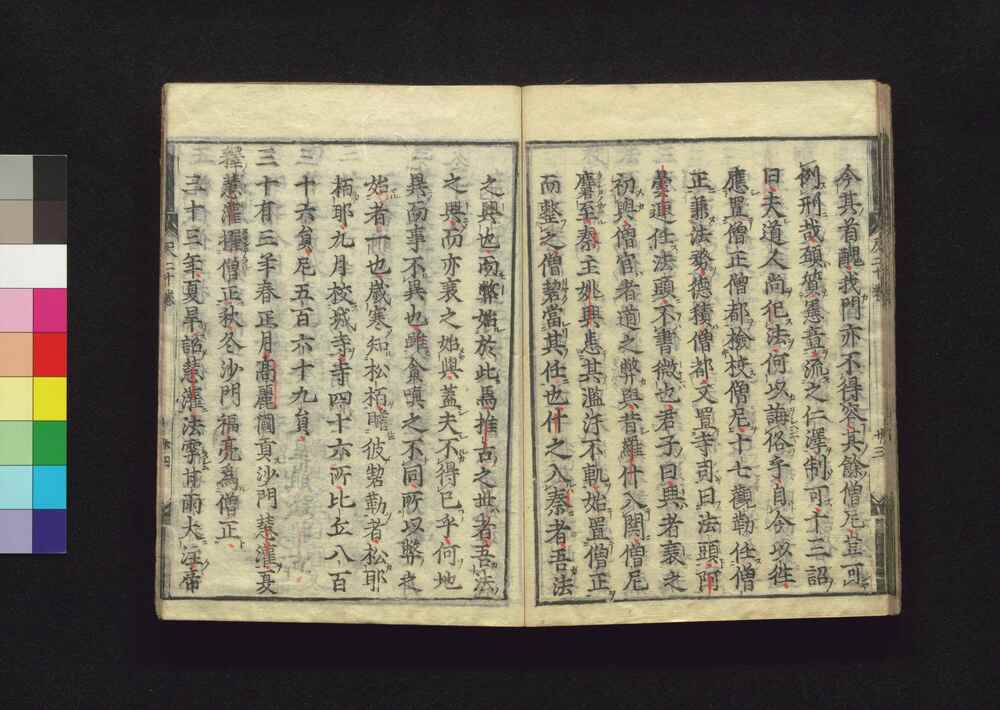 今其首醜我門亦不得容其餘僧尼豈可
例刑哉頒貸愚童流之仁澤制可十三詔
曰夫道人尚犯法何以誨俗乎自今以往
應置僧正僧都檢校僧尼十七觀勒任僧
正兼法務德積僧都又置寺司曰法頭阿
曇連任法頭不書微也君子曰興者衰之
初興僧官者道之弊與昔羅什入關僧尼
麕至秦主姚興患其濫汙不軌始置僧正
而整之僧䂮當其任也什之入秦者吾法
之興也而弊始於此焉推古之世者吾法
之興而亦衰之始與蓋夫不得已乎何地
異而事不異也雖貪嗔之不同所以弊之
始者一也歲寒知松栢瞻彼䂮勒者松耶
栢耶九月校城寺寺四十六所比丘八百
十六員尼五百六十九員
三十有三年春正月高麗國貢沙門慧灌夏
釋慧灌擢僧正秋冬沙門福亮爲僧正
三十三年夏旱詔慧灌法雩甘雨大注帝
尺二十卷